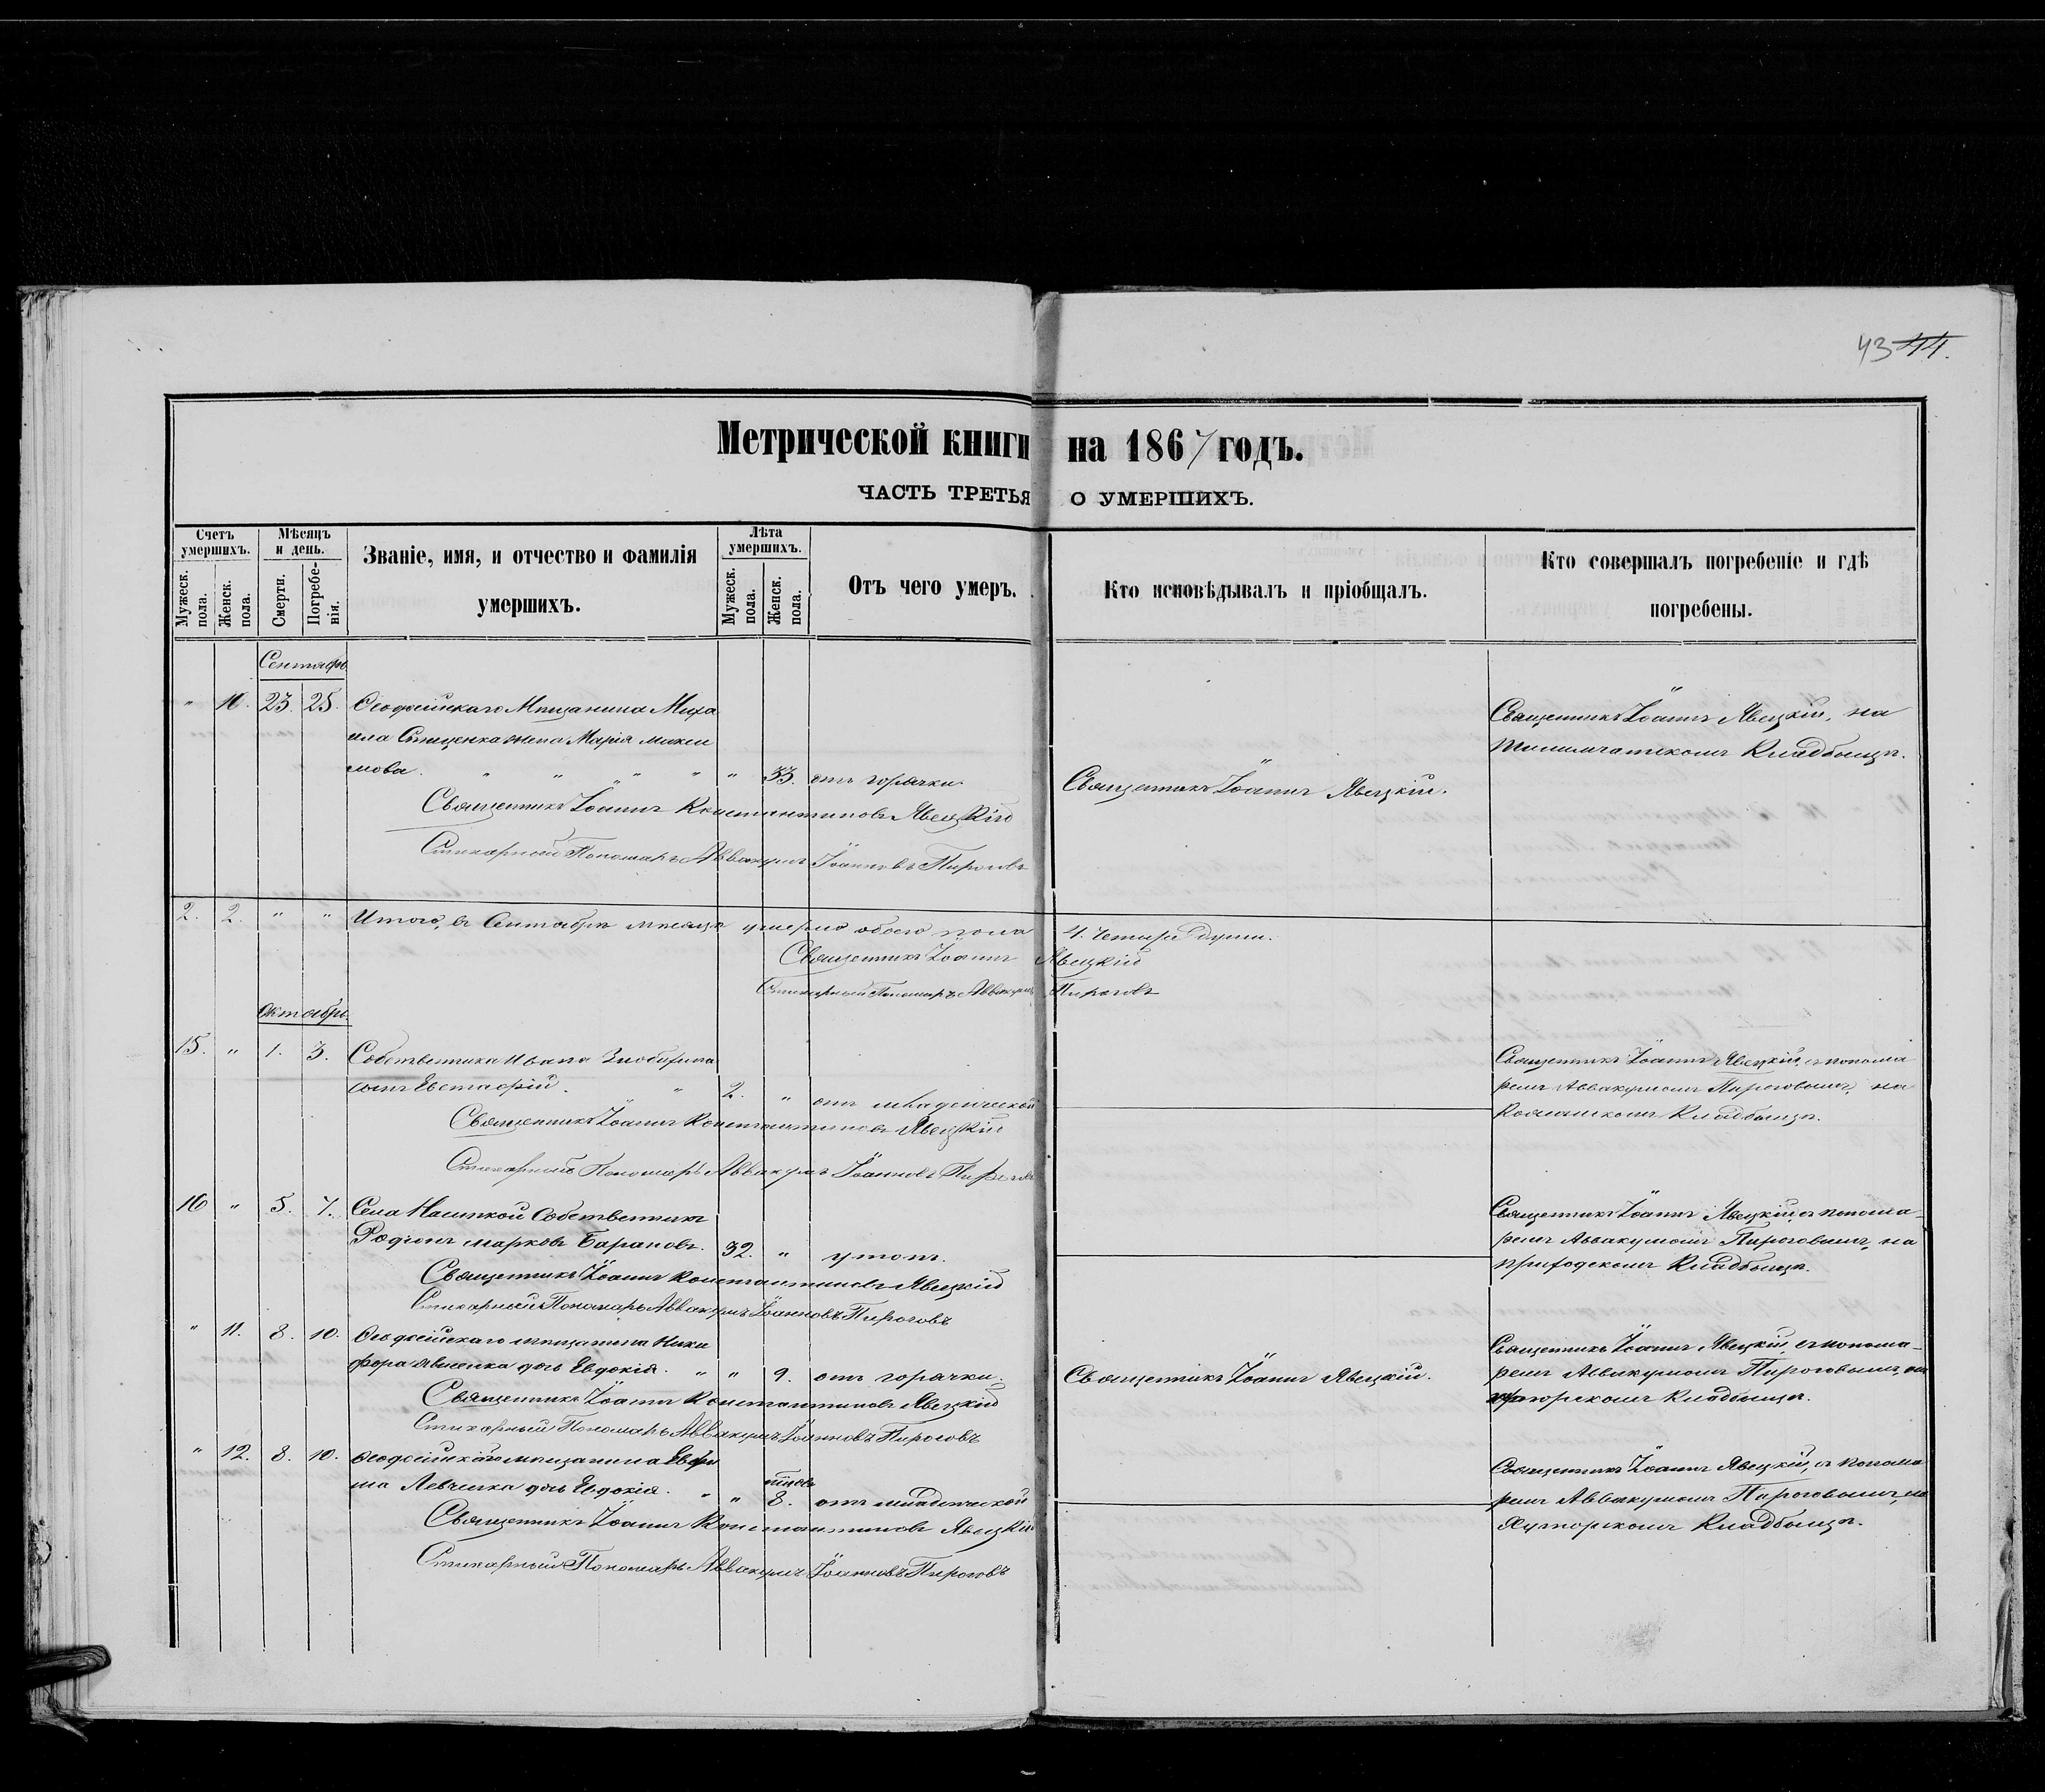 43 44.
Метрической книги на 1867 годъ.
ЧАСТЬ ТРЕТЬЯ О УМЕРШИХЪ.
Счетъ умершихъ.
Мужеск. пола.
Женск. пола.
Мѣсяцъ и день.
Смерти.
Погребенія.
Званіе, имя, и отчество и фамилія умершихъ.
Лѣта умершихъ.
Мужеск. пола.
Женск. пола.
Отъ чего умеръ.
Кто исповѣдывалъ и пріобщалъ.
Кто совершалъ погребеніе и гдѣ погребены.
Сентябрь
" 10. 23. 25. Ѳеодосійскаго Мѣщанина Миха
ила жена Марія Макси
мова. " " 33. отъ горячки.
Священникъ Іоаннъ Явецкій.
Священникъ Іоаннъ Явецкій, на
Кладбищѣ.
Священникъ Іоаннъ Константиновъ Явецкій
Стихарный Пономарь Аввакумъ Іоанновъ Пироговъ
2. 2. " " Итого, въ Сентябрѣ мѣсяцѣ умерло обоего пола 4. Четыри души.
Священникъ Іоаннъ Явецкій
Стихарный Пономарь Аввакумъ Пироговъ
Октябрь.
15. " 1. 3. Собственника Ивана
сынъ Евстафій. " 2. " отъ младенческой
Священникъ Іоаннъ Явецкій, съ понома
ремъ Аввакумомъ Пироговымъ, на
Кладбищѣ.
Священникъ Іоаннъ Константиновъ Явецкій
Стихарный Пономарь Аввакумъ Іоанновъ Пироговъ
16 " 5. 7. Села Собственникъ
Родіонъ Марковъ Барановъ. 32. " утопъ.
Священникъ Іоаннъ Явецкій, съ понома-
ремъ Аввакумомъ Пироговымъ, на
приходскомъ Кладбищѣ.
Священникъ Іоаннъ Константиновъ Явецкій
Стихарный Пономарь Аввакумъ Іоанновъ Пироговъ
" 11. 8. 10. Ѳеодосійскаго мѣщанина Ники
фора дочь Евдокія. " " 9. отъ горячки.
Священникъ Іоаннъ Явецкій.
Священникъ Іоаннъ Явецкій, съ понома-
ремъ Аввакумомъ Пироговымъ, на
хуторскомъ Кладбищѣ.
Священникъ Іоаннъ Константиновъ Явецкій
Стихарный Пономарь Аввакумъ Іоанновъ Пироговъ
" 12. 8. 10. Ѳеодосійскаго мѣщанина
Левченка дочь Евдокія. " " 8. отъ младенческой
Священникъ Іоаннъ Явецкій, съ понома
ремъ Аввакумомъ Пироговымъ, на
Хуторскомъ Кладбищѣ.
Священникъ Іоаннъ Константиновъ Явецкій
Стихарный Пономарь Аввакумъ Іоанновъ Пироговъ